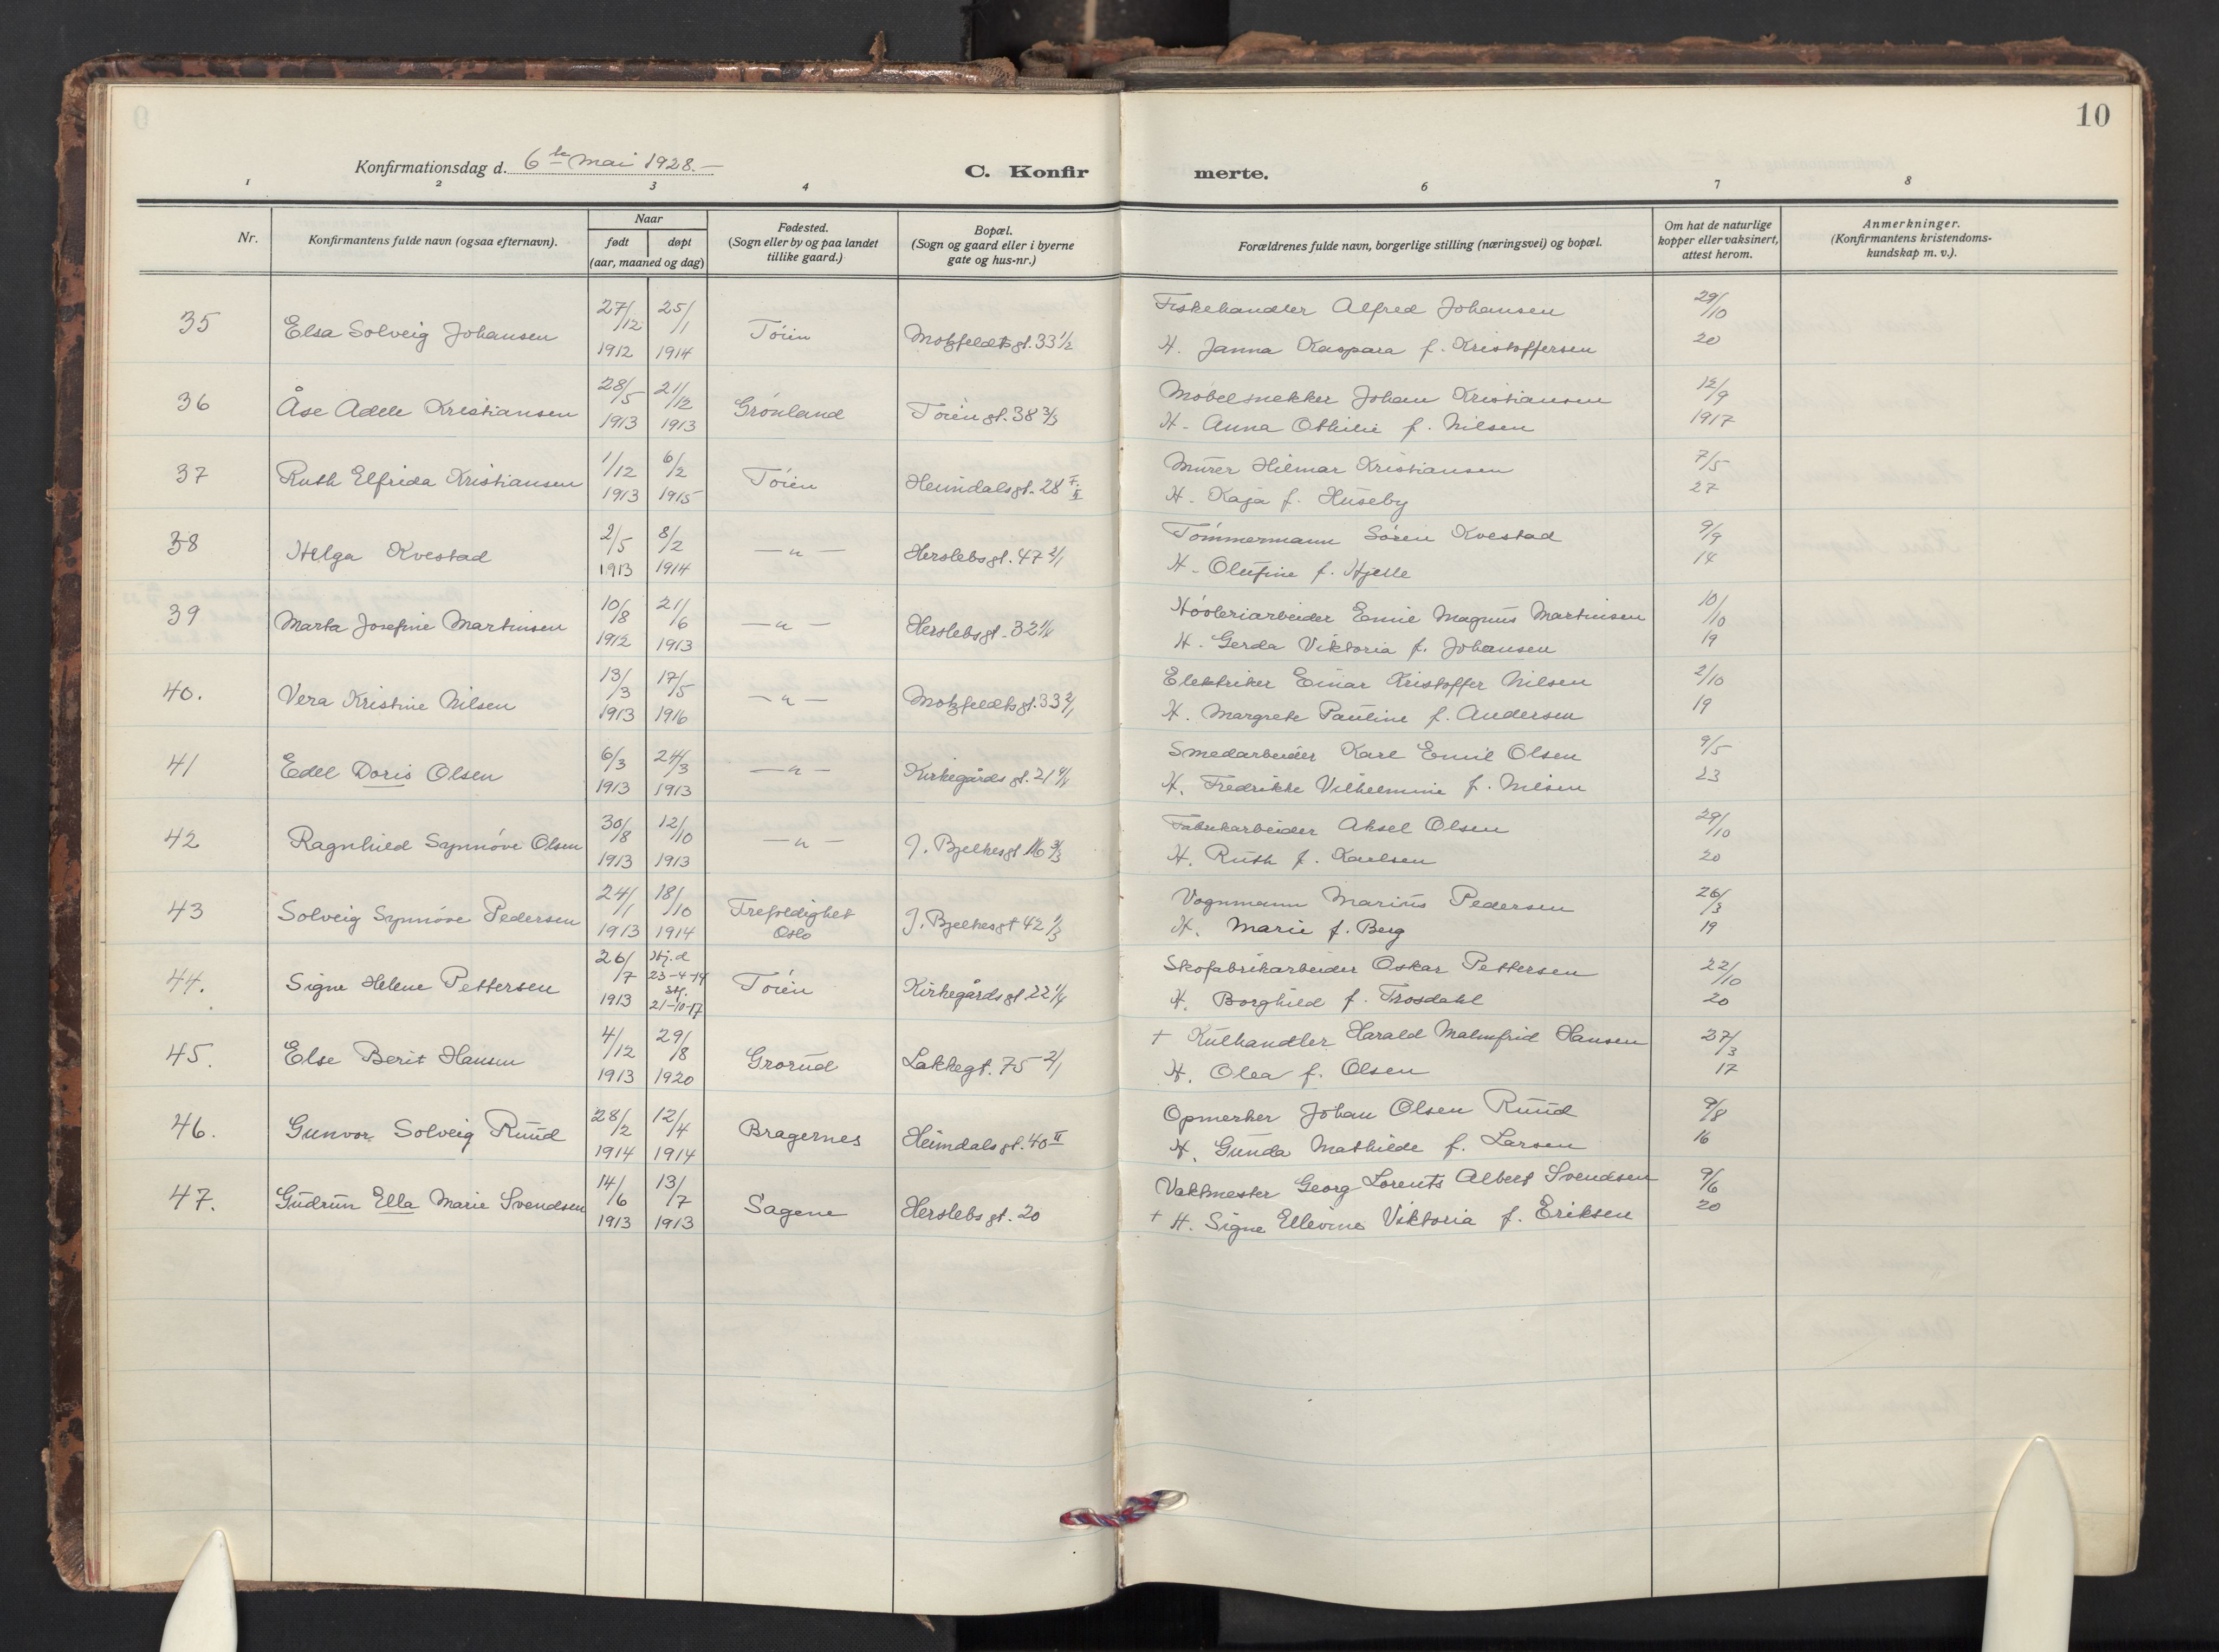 10
Konfirmationsdag d. 6te mai 1928.-
C. Konfirmerte.
1 2 3 4 6 7 8
Nr.
Konfirmantens fulde navn (ogsaa efternavn).
Naar
født døpt
(aar, maaned og dag)
Fødested.
(Sogn eller by og paa landet
tillike gaard.)
Bopæl.
(Sogn og gaard eller i byerne
gate og hus-nr.)
Forældrenes fulde navn, borgerlige stilling (næringsvei) og bopæl.
Om hat de naturlige
kopper eller vaksinert,
attest herom.
Anmerkninger.
(Konfirmantens kristendoms-
kundskap m. v.).
35 Elsa Solveig Johansen 27/12 1912 25/1 1914 Töien Motzfeldtsgt. 33 1/2 Fiskehandler Alfred Johansen 29/10
H. Janna Kaspara f. Kristoffersen 20
36 Åse Adele Kristiansen 28/5 1913 21/12 1913 Grönland Töiengt. 38 3/3 Möbelsnekker Johan Kristiansen 12/9
H. Anna Othilie f. Nilsen 1917
37 Ruth Elfrida Kristiansen 1/12 1913 6/2 1915 Töien Heimdalsgt. 28 F. II Murer Hilmar Kristiansen 7/5
H. Kaja f. Huseby 27
38 Helga Kvestad 2/5 1913 8/2 1914 — " — Herslebsgt. 47 2/1 Tömmermann Sören Kvestad 9/9
H. Olufine f. Hjelle 14
39 Marta Josefine Martinsen 10/8 1912 21/6 1913 — " — Herslebsgt. 32 1/4 Hövleriarbeider Emil Magnus Martinsen 10/10
H. Gerda Viktoria f. Johansen 19
40. Vera Kristine Nilsen 13/3 1913 17/5 1916 — " — Motzfeldtsgt. 33 2/1 Elektriker Einar Kristoffer Nilsen 2/10
H. Margrete Pauline f. Andersen 19
41 Edel Doris Olsen 6/3 1913 24/3 1913 — " — Kirkegårdsgt. 21 4/4 Smedarbeider Karl Emil Olsen 9/5
H. Fredrikke Vilhelmine f. Nilsen 23
42 Ragnhild Synnöve Olsen 30/8 1913 12/10 1913 — " — J. Bjelkesgt 16 3/3 Fabrikarbeider Aksel Olsen 29/10
H. Ruth f. Karlsen 20
43 Solveig Synnöve Pedersen 24/1 1913 18/10 1914 Trefoldighet Oslo J. Bjelkesgt 42 1/3 Vognmann Marius Pedersen 26/3
H. Marie f. Berg 19
44. Signe Helene Pettersen 26/7 1913 Hj.d 23-4-14 stf. 21-10-17 Töien Kirkegårdsgt. 22 1/4 Skofabrikarbeider Oskar Pettersen 22/10
H. Borghild f. Trosdahl 20
45. Else Berit Hansen 4/12 1913 29/8 1920 Grorud Lakkegt. 75 2/1 + Kulhandler Harald Malmfrid Hansen 27/3
H. Olea f. Olsen 17
46. Gunvor Solveig Ruud 28/2 1914 12/4 1914 Bragernes Heimdalsgt. 40 II Opmerker Johan Olsen Ruud 9/8
H. Gunda Mathilde f. Larsen 16
47. Gudrun Ella Marie Svendsen 14/6 1913 13/7 1913 Sagene Herslebsgt. 20 Vaktmester Georg Lorents Albert Svendsen 9/6
+ H. Signe Ellevine Viktoria f. Eriksen 20